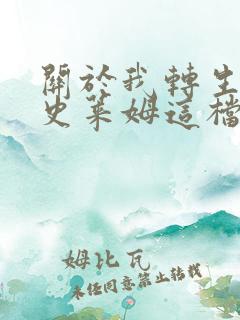 關於我轉生
史萊姆這檔
姆比瓦
未經同意禁止轉載